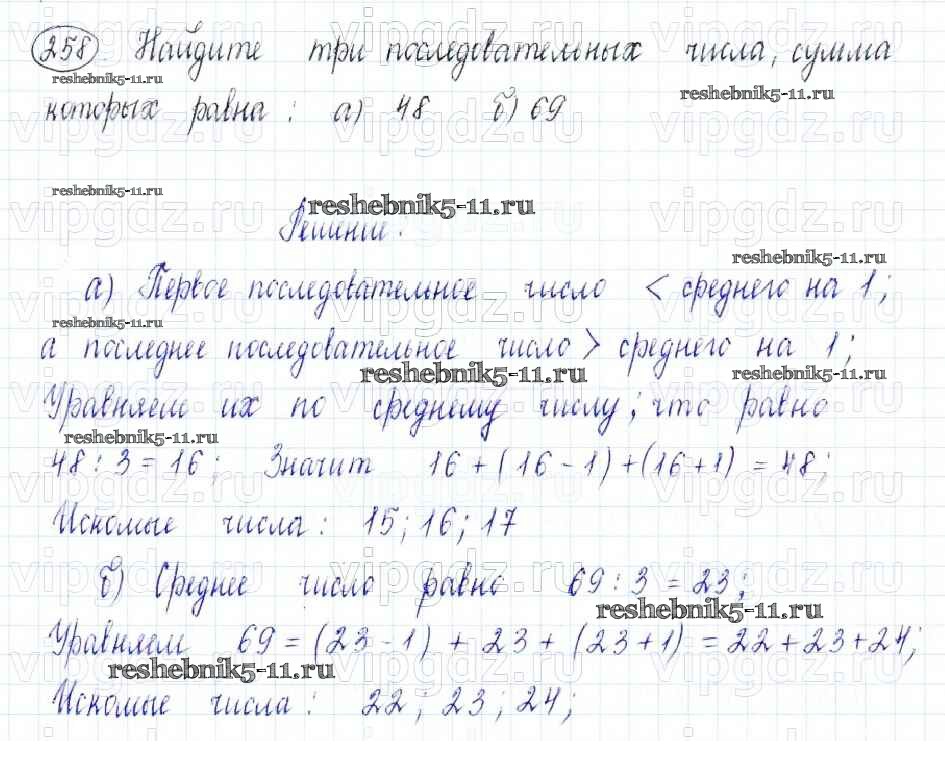 258 Найдите три последовательных числа, сумма
reshebnik5-11.ru reshebnik5-11.ru
которых равна: а) 48 б) 69
reshebnik5-11.ru
reshebnik5-11.ru
Решение:
reshebnik5-11.ru
а) Первое последовательное число < среднего на 1;
reshebnik5-11.ru
а последнее последовательное число > среднего на 1;
reshebnik5-11.ru reshebnik5-11.ru
Уравняем их по среднему числу; что равно
reshebnik5-11.ru
48 : 3 = 16; Значит 16 + (16 - 1) + (16 + 1) = 48;
Искомые числа: 15; 16; 17
б) Среднее число равно 69 : 3 = 23;
reshebnik5-11.ru
Уравняем 69 = (23 - 1) + 23 + (23 + 1) = 22 + 23 + 24;
reshebnik5-11.ru
Искомые числа: 22; 23; 24;
vipgdz.ru